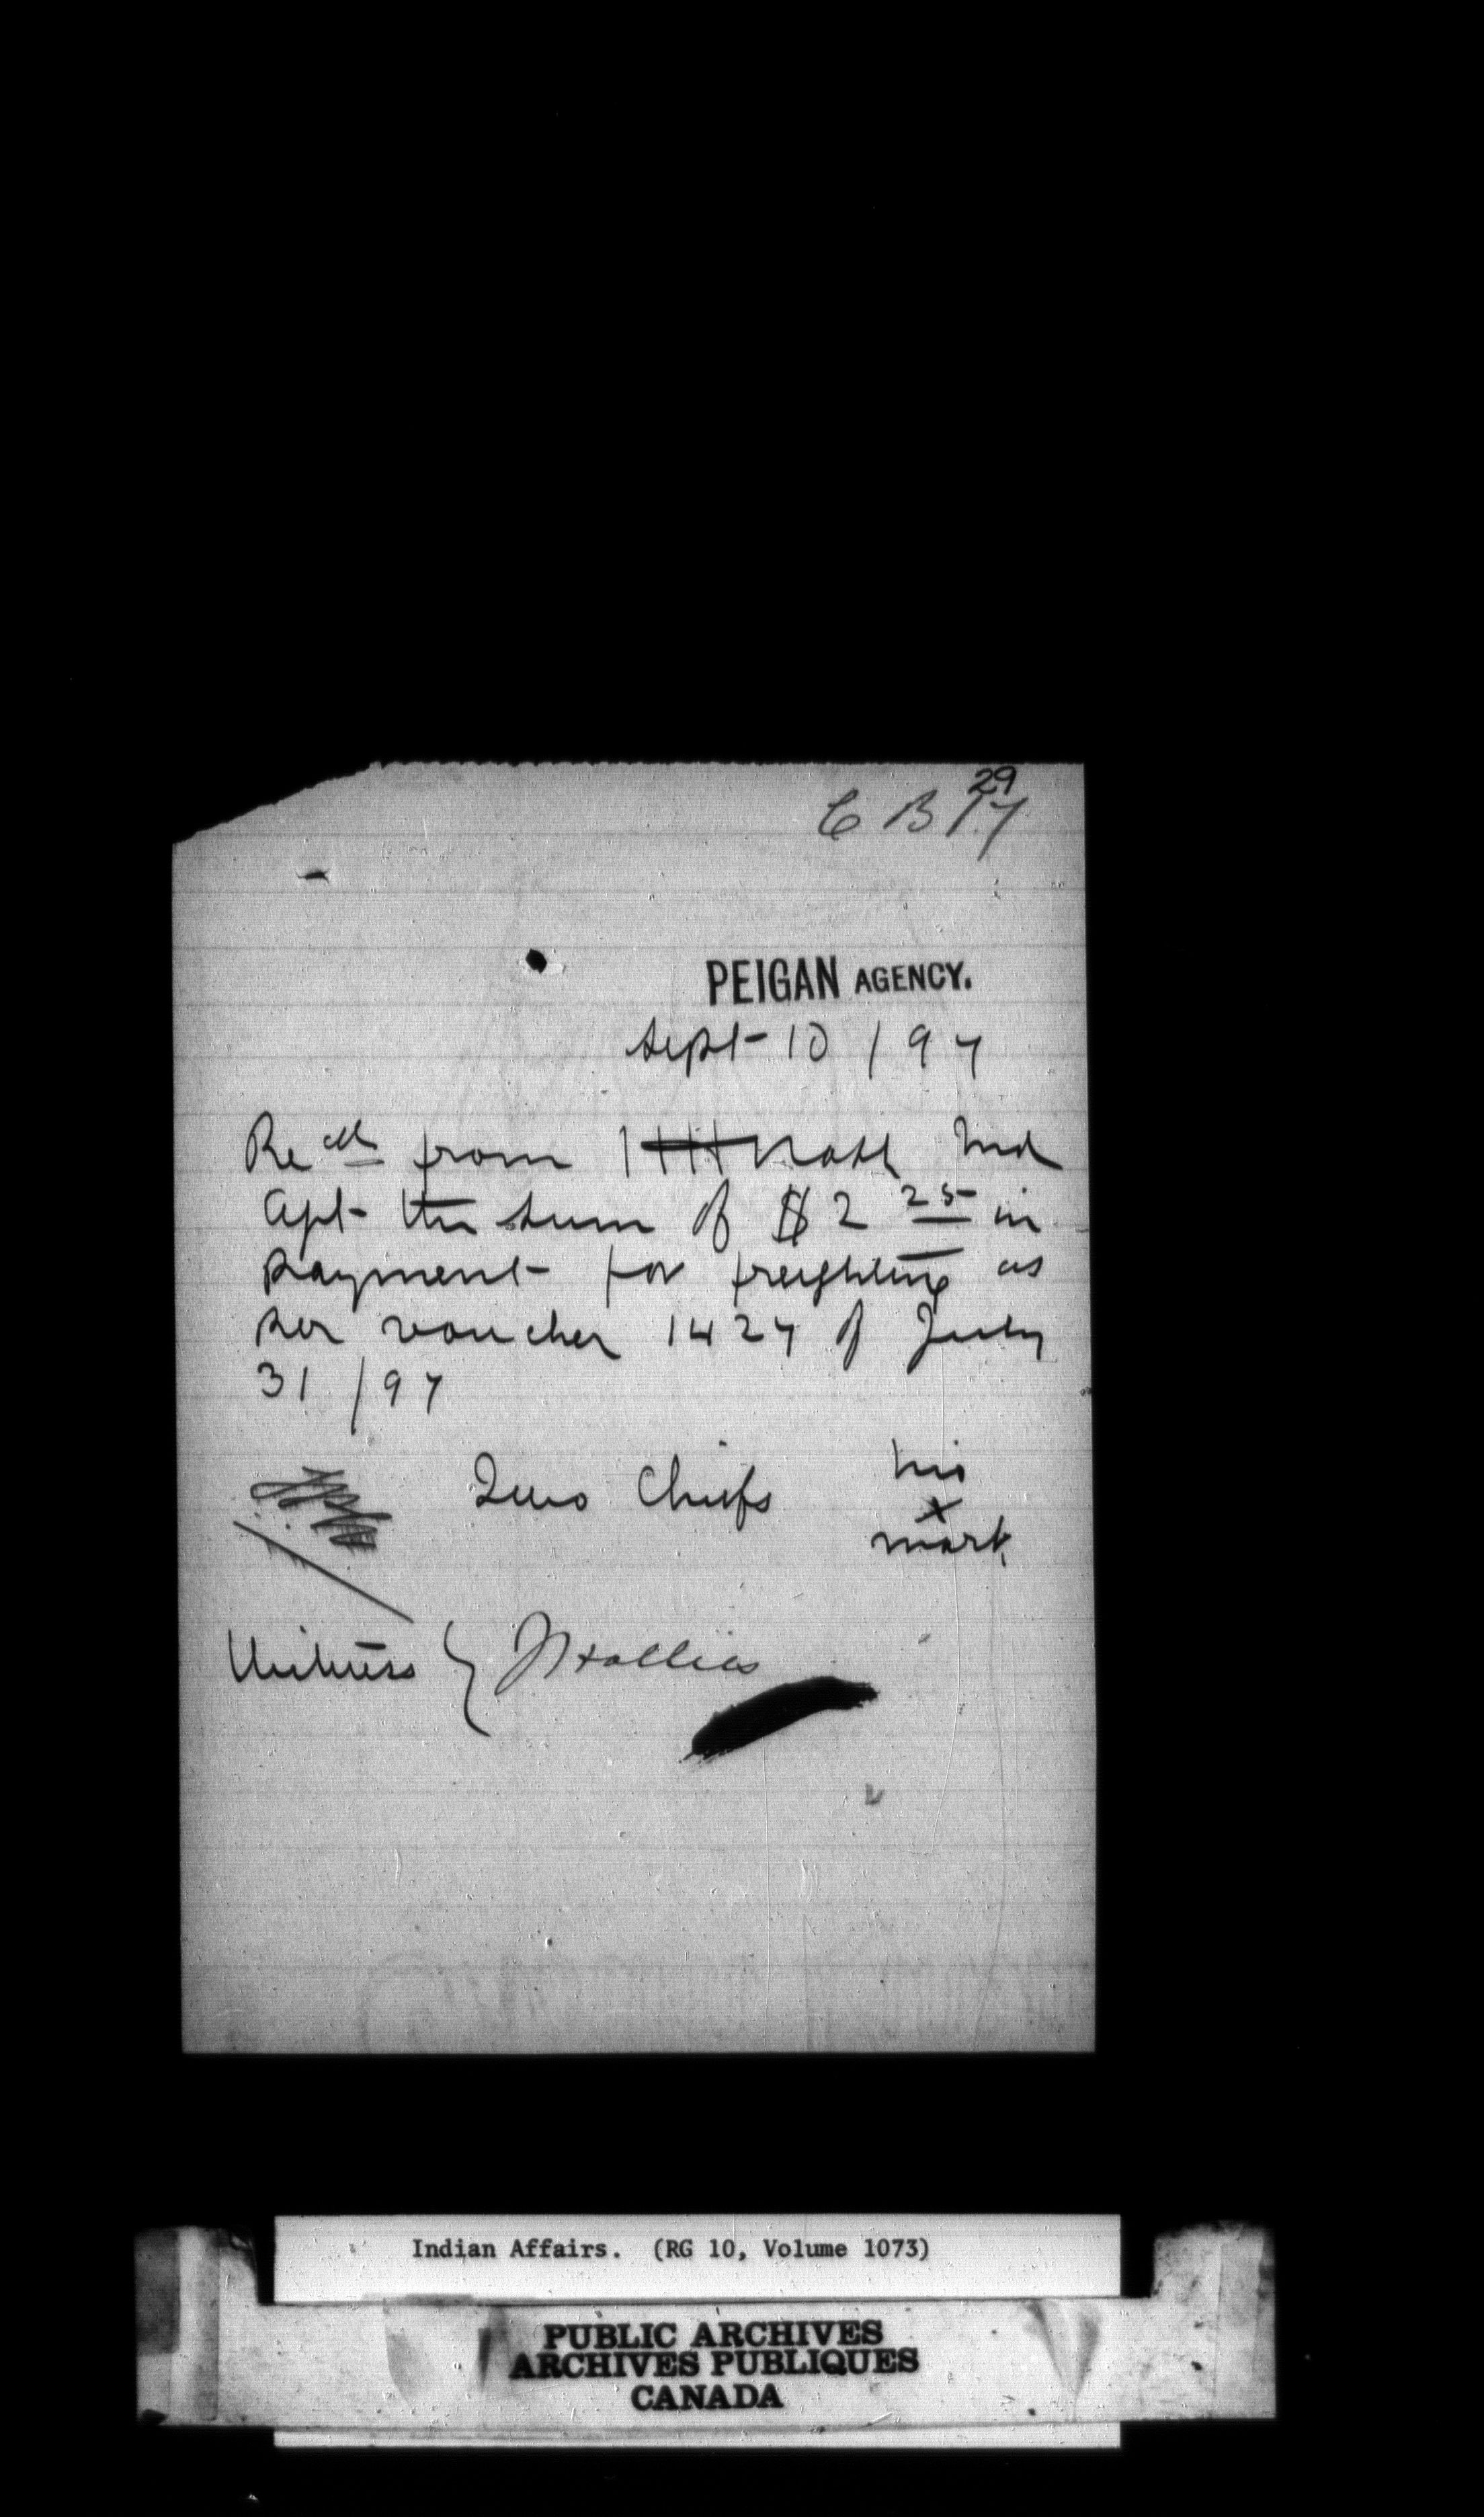 29
C B 17
PEIGAN AGENCY.
Sept 10 / 97
Recd from H H Nash Ind
Agt the sum of $2 25 in
payment for freighting as
per voucher 1427 of July
31 / 97
Two Chiefs his
x
mark
Witness }
Indian Affairs. (RG 10, Volume 1073)
PUBLIC ARCHIVES
ARCHIVES PUBLIQUES
CANADA